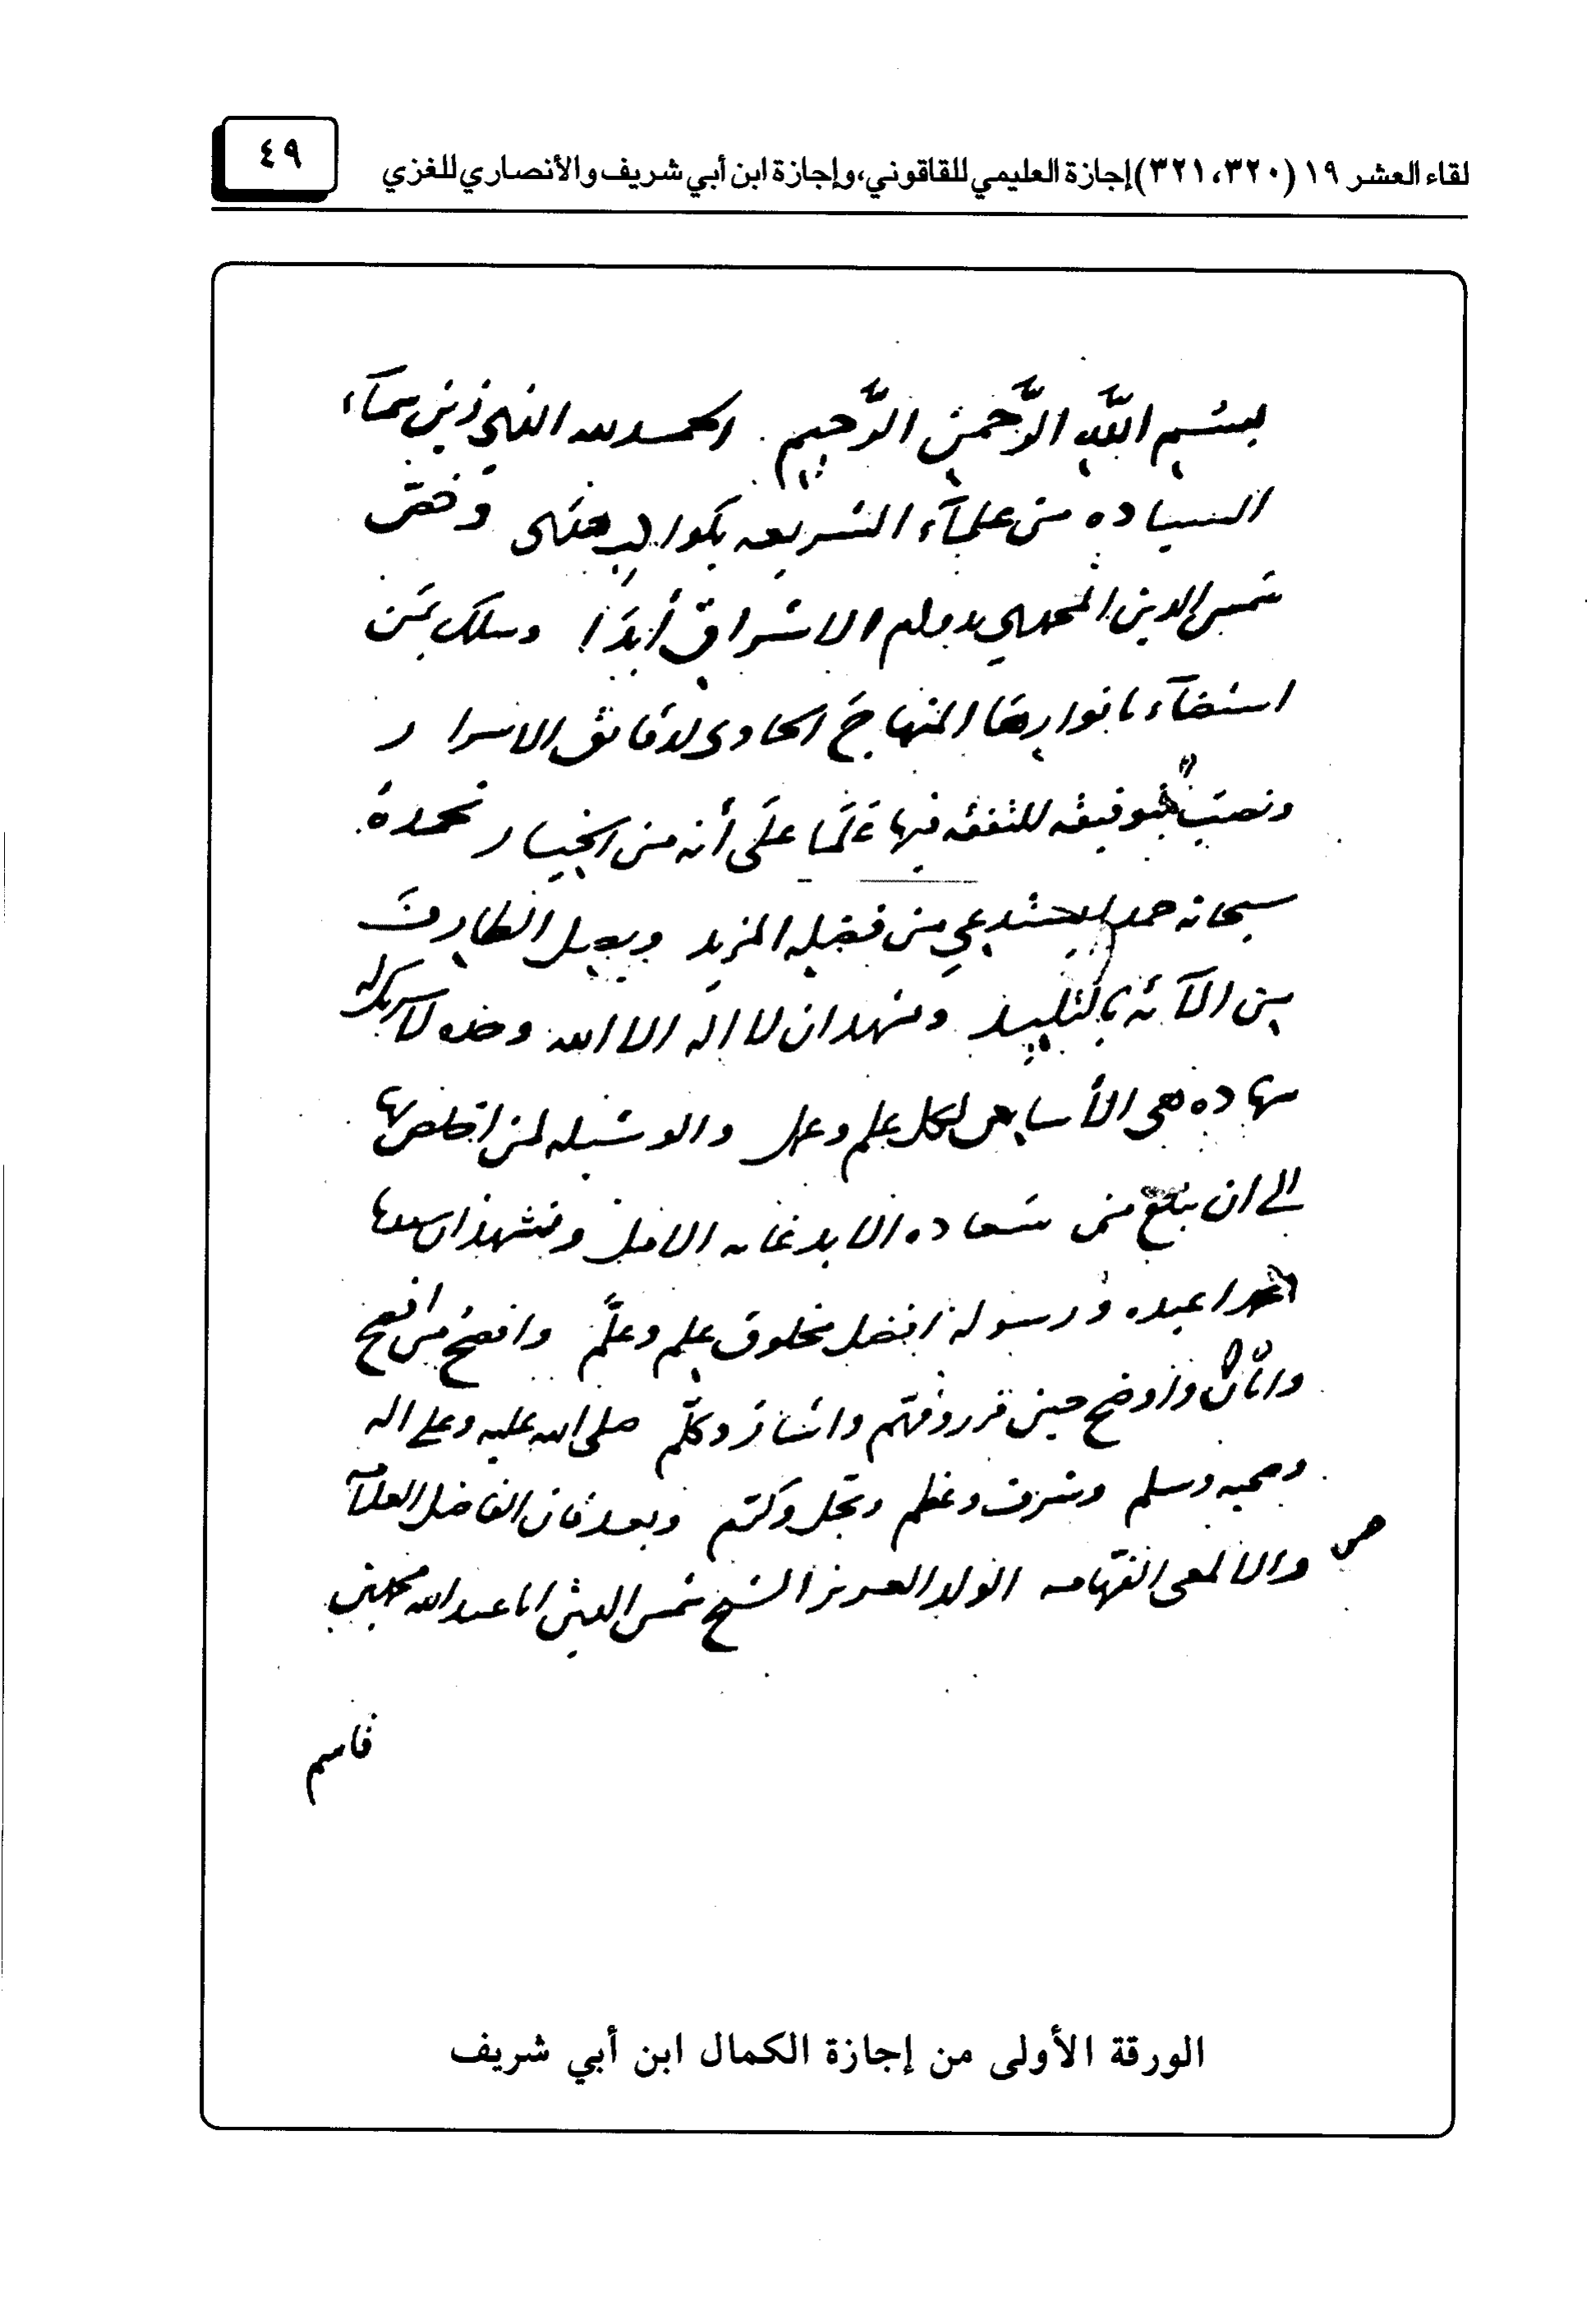 لقاء العشر ١٩ (٣٢٠، ٣٢١) إجازة العليمي للقاقوني، وإجازة ابن أبي شريف والأنصاري للغزي
٤٩
بسم الله الرحمن الرحيم الحمد لله الذي زين سماء
السياده من علماء الشريعه بكواكب وخص
شمس الدين المحمدي بدوام الاشراق أبدا وسلك بمن
استضاء بانوارها المنهاج الحاوى لدقائق الاسرار
ونصب بتوفيقه للتفقه فيها علما على أنه من الخيار نحمده
سبحانه حمدا يستدعي من فضله المزيد ويصل الطارف
من الآئه بالتليد ونشهد ان لا اله الا الله وحده لا شريك له
شهاده هي الأساس لكل علم وعمل والوسيله لمن اخلص بها
الى ان يبلغ من سعاده الابد غايه الامل ونشهد ان سيدنا
محمدا عبده ورسوله افضل مخلوق علم وعلم وافصح من افصح
وابان واوضح حين قرر وفهم واشار وكلم صلى الله عليه وعلى اله
وصحبه وسلم وشرف وعظم وبجل وكرم وبعد فان الفاضل العلامه
والالمعي الفهامه الولد العزيز الشيخ شمس الدين ابا عبد الله محمد بن
قاسم
الورقة الأولى من إجازة الكمال ابن أبي شريف